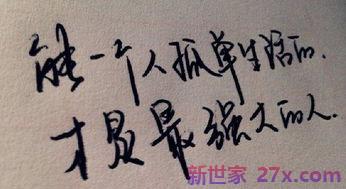 能一个人孤单生活的.
才是最强大的人.
新世家 27x.com